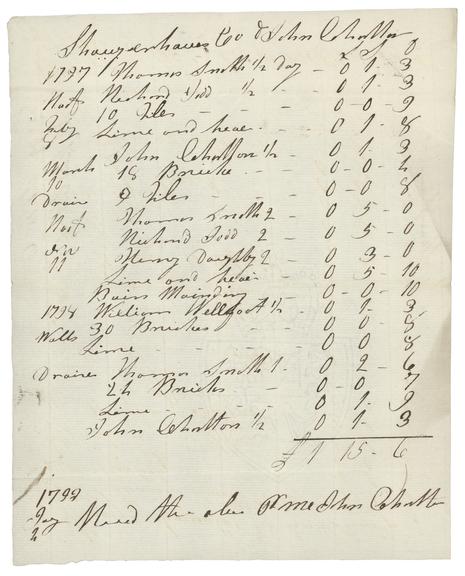 Co to John Chatton
£ s d
1797 Thomas Smith 1/2 Day - 0 1 - 3
Roof Richard Todd 1/2 - - 0 1 - 3
10 Tiles - - - 0 - 0 - 9
Lime and hear - - 0 1 - 8
March John Chatton 1/2 - 0 1 - 3
10 18 Bricks - - 0 - 0 - 4
Draire 9 Tiles - - 0 - 0 8
Roof Thomas Smith 2 - 0 5 - 0
Richard Todd 2 - 0 5 - 0
11 Henry Daughby 2 - 0 3 - 0
Lime and hear - 0 5 10
Mainding - 0 - 0 10
1798 William Wellfoot 1/2 - 0 1 - 3
Walls 30 Brickes - - 0 0 - 5
Lime - - - 0 0 8
Draire Thomas Smith 1 - 0 2 - 6
24 Bricks - - 0 - 0 7
Lime - - - 0 1 - 9
John Chatton 1/2 0 1 - 3
£ 1 15 - 6
1799
me John Chatton